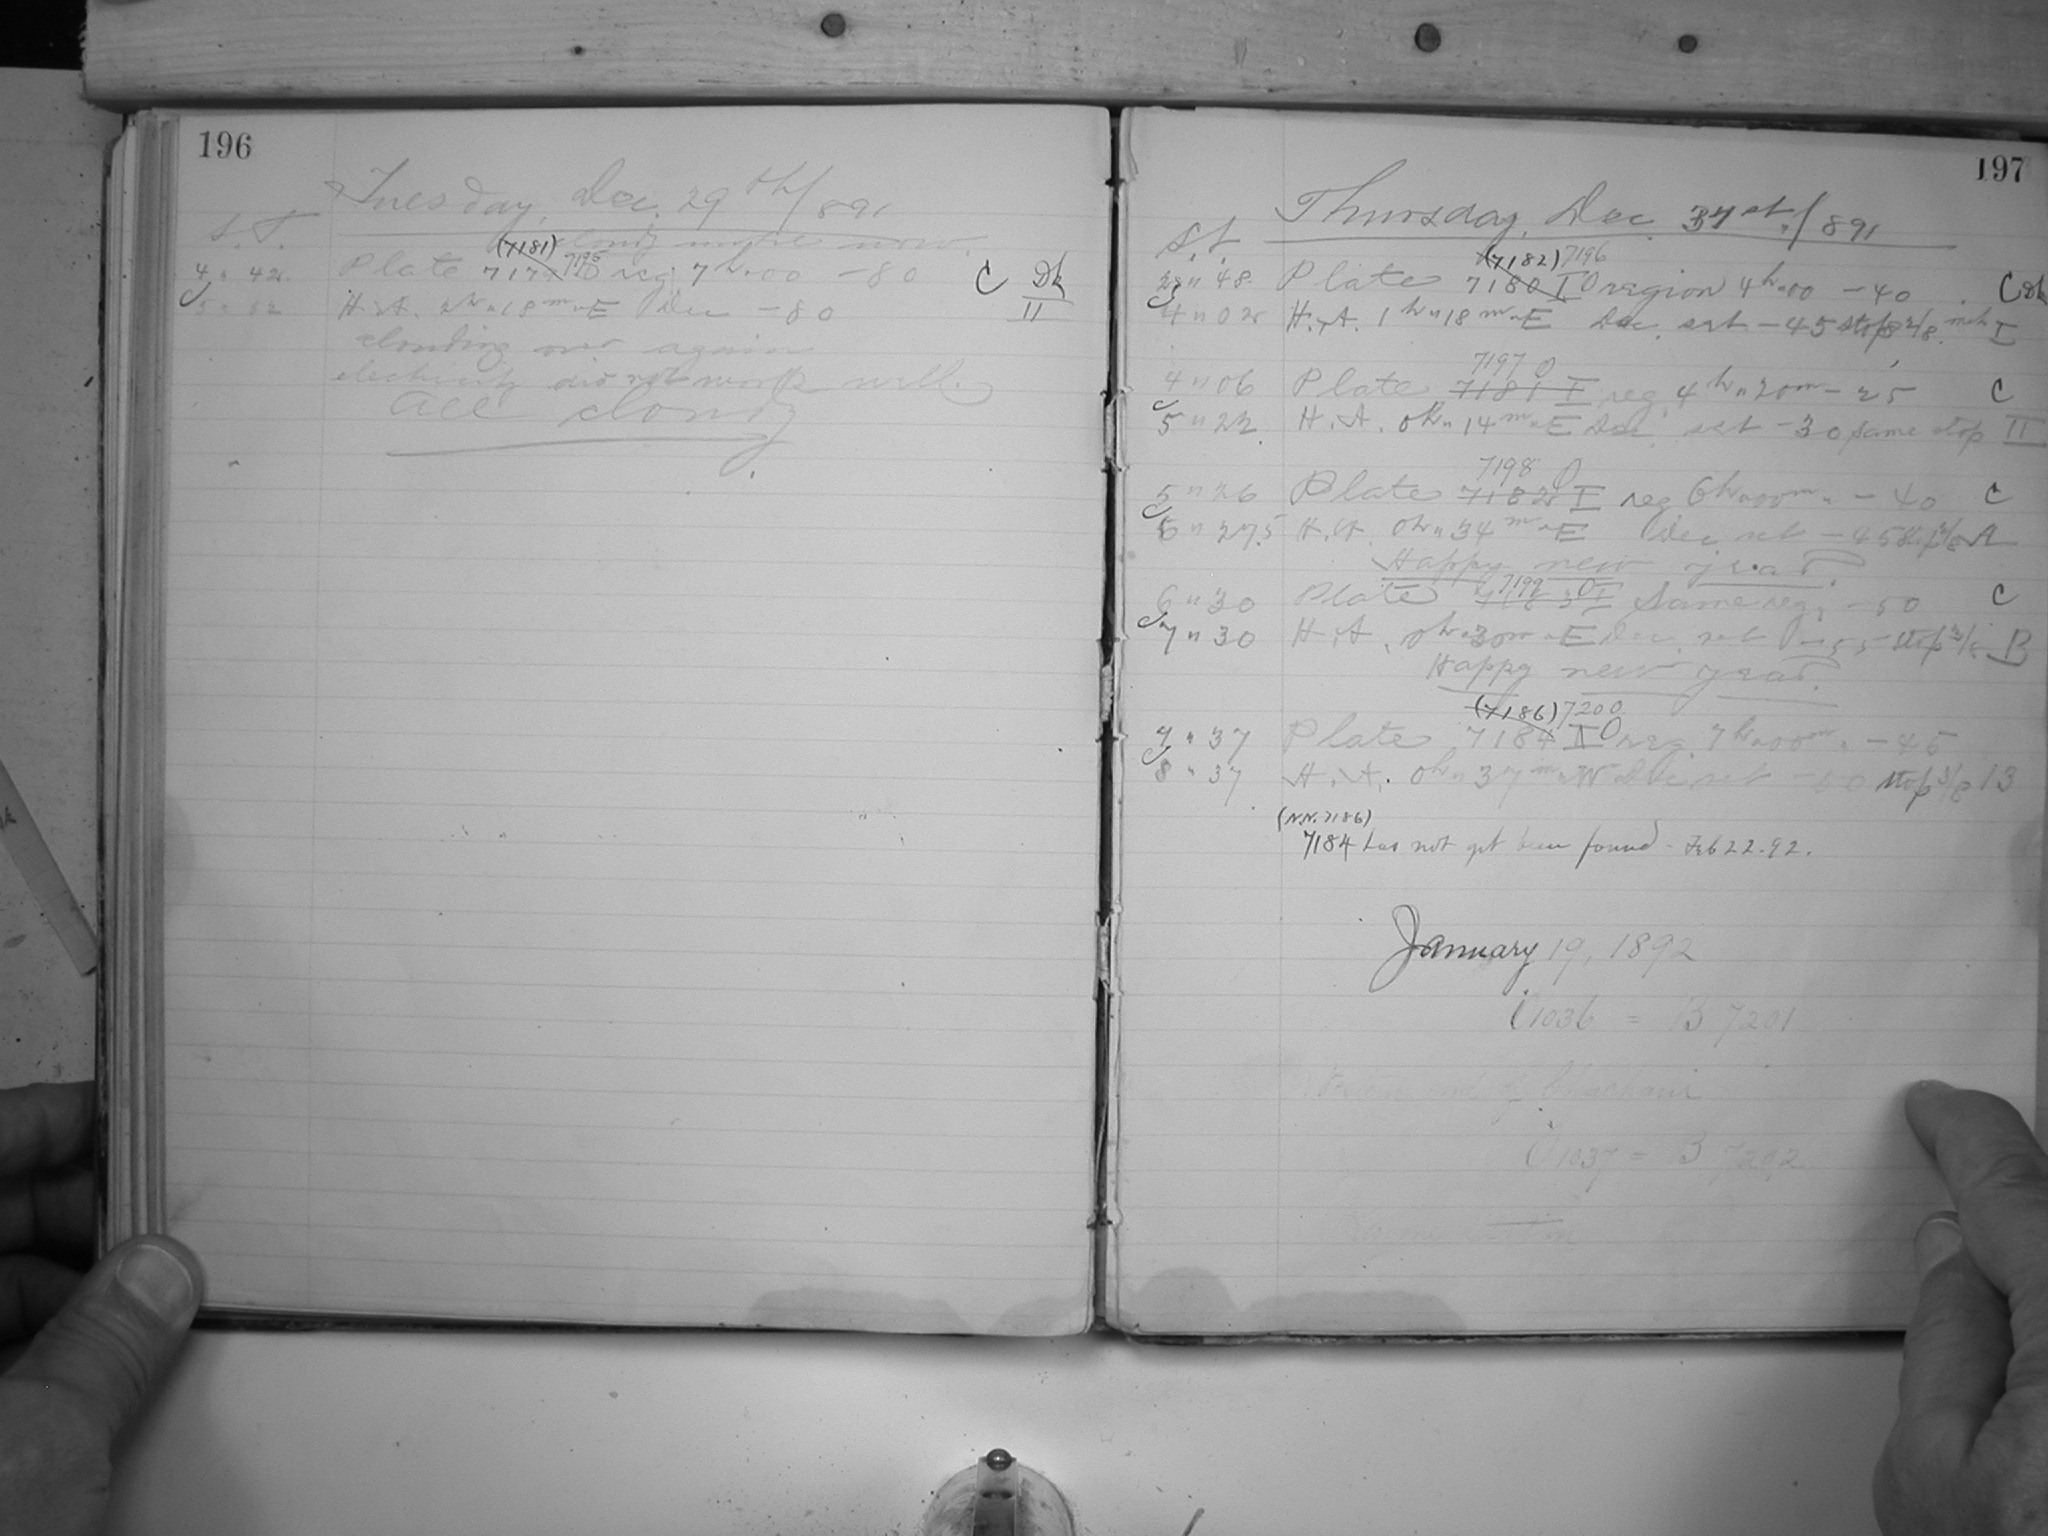 196
Tuesday, Dec. 29th/891
S.T.
cloudy more now.
(7181) 7195
4 " 42 Plate 7179 D reg. 7h"00 -80 C Dk
5 " 52 H.A. 2h"18m"E Dec -80 II
clouding over again
electricity did not work well.
all cloudy
197
Thursday, Dec. 31st,/891
S.T.
(7182) 7196
48 Plate 7180 I O region 4h"00 -40 C Dk
4 " 02 H.A. 1h"18m"E Dec. set -45 stop 2/8 inch I
7197 O
4 " 06 Plate 7181 I reg. 4h"20m -25 C
5 " 22 H.A. 0h"14m"E Dec. set -30 same stop II
7198 O
5 " 26 Plate 7182 I reg 6h"00m" -40 C
6 " 27.5 H.A. 0h"34m"E Dec set -45 A
Happy new year.
7199 O
6 " 30 Plate 7183 I Same reg, -50 C
7 " 30 H.A. 0h"30m"E Dec. set -55 stop 3/8 B
Happy new year.
(7186) 7200
7 " 37 Plate 7184 I O reg. 7h"00m" -45
8 " 37 H.A. 0h"37m"W Dec set -50 stop 3/8 13
(N.N. 7186)
7184 has not yet been found - Feb 22.92.
January 19, 1892
C 1036 = B 7201
end of
C 1037 = B 7202